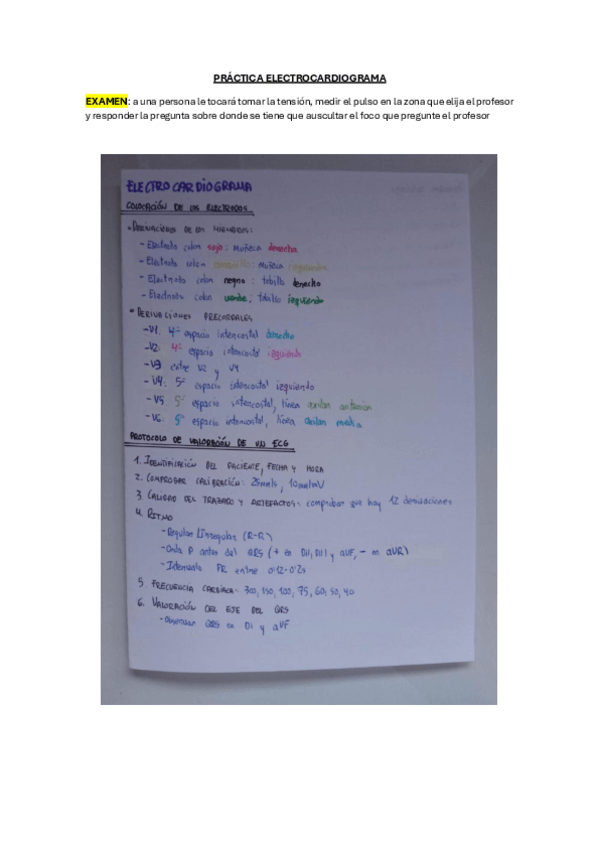 PRÁCTICA ELECTROCARDIOGRAMA
EXAMEN: a una persona le tocará tomar la tensión, medir el pulso en la zona que elija el profesor
y responder la pregunta sobre donde se tiene que auscultar el foco que pregunte el profesor
ELECTROCARDIOGRAMA
COLOCACIÓN DE LOS ELECTRODOS
* DERIVACIONES DE LOS MIEMBROS:
- Electrodo color rojo: muñeca derecha
- Electrodo color amarillo: muñeca izquierda
- Electrodo color negro: tobillo derecho
- Electrodo color verde, tobillo izquierdo
* DERIVACIONES PRECORDIALES
- V1: 4º espacio intercostal derecho
- V2: 4º espacio intercostal izquierdo
- V3 entre V2 y V4
- V4: 5º espacio intercostal izquierdo
- V5: 5º espacio intercostal, línea axilar anterior
- V6: 5º espacio intercostal, línea axilar media
PROTOCOLO DE VALORACIÓN DE UN ECG
1. IDENTIFICACIÓN DEL PACIENTE, FECHA Y HORA
2. COMPROBAR CALIBRACIÓN: 25mm/s, 10mm/mV
3. CALIDAD DEL TRABAJO Y ARTEFACTOS: comprobar que hay 12 derivaciones
4. RITMO
- Regular/Irregular (R-R)
- Onda P antes del QRS (+ en DII, DIII y aVF, - en aVR)
- Intervalo PR entre 0'12-0'2s
5. FRECUENCIA CARDÍACA: 300, 150, 100, 75, 60, 50, 40
6. VALORACIÓN DEL EJE DEL QRS
- Observar QRS en DI y aVF